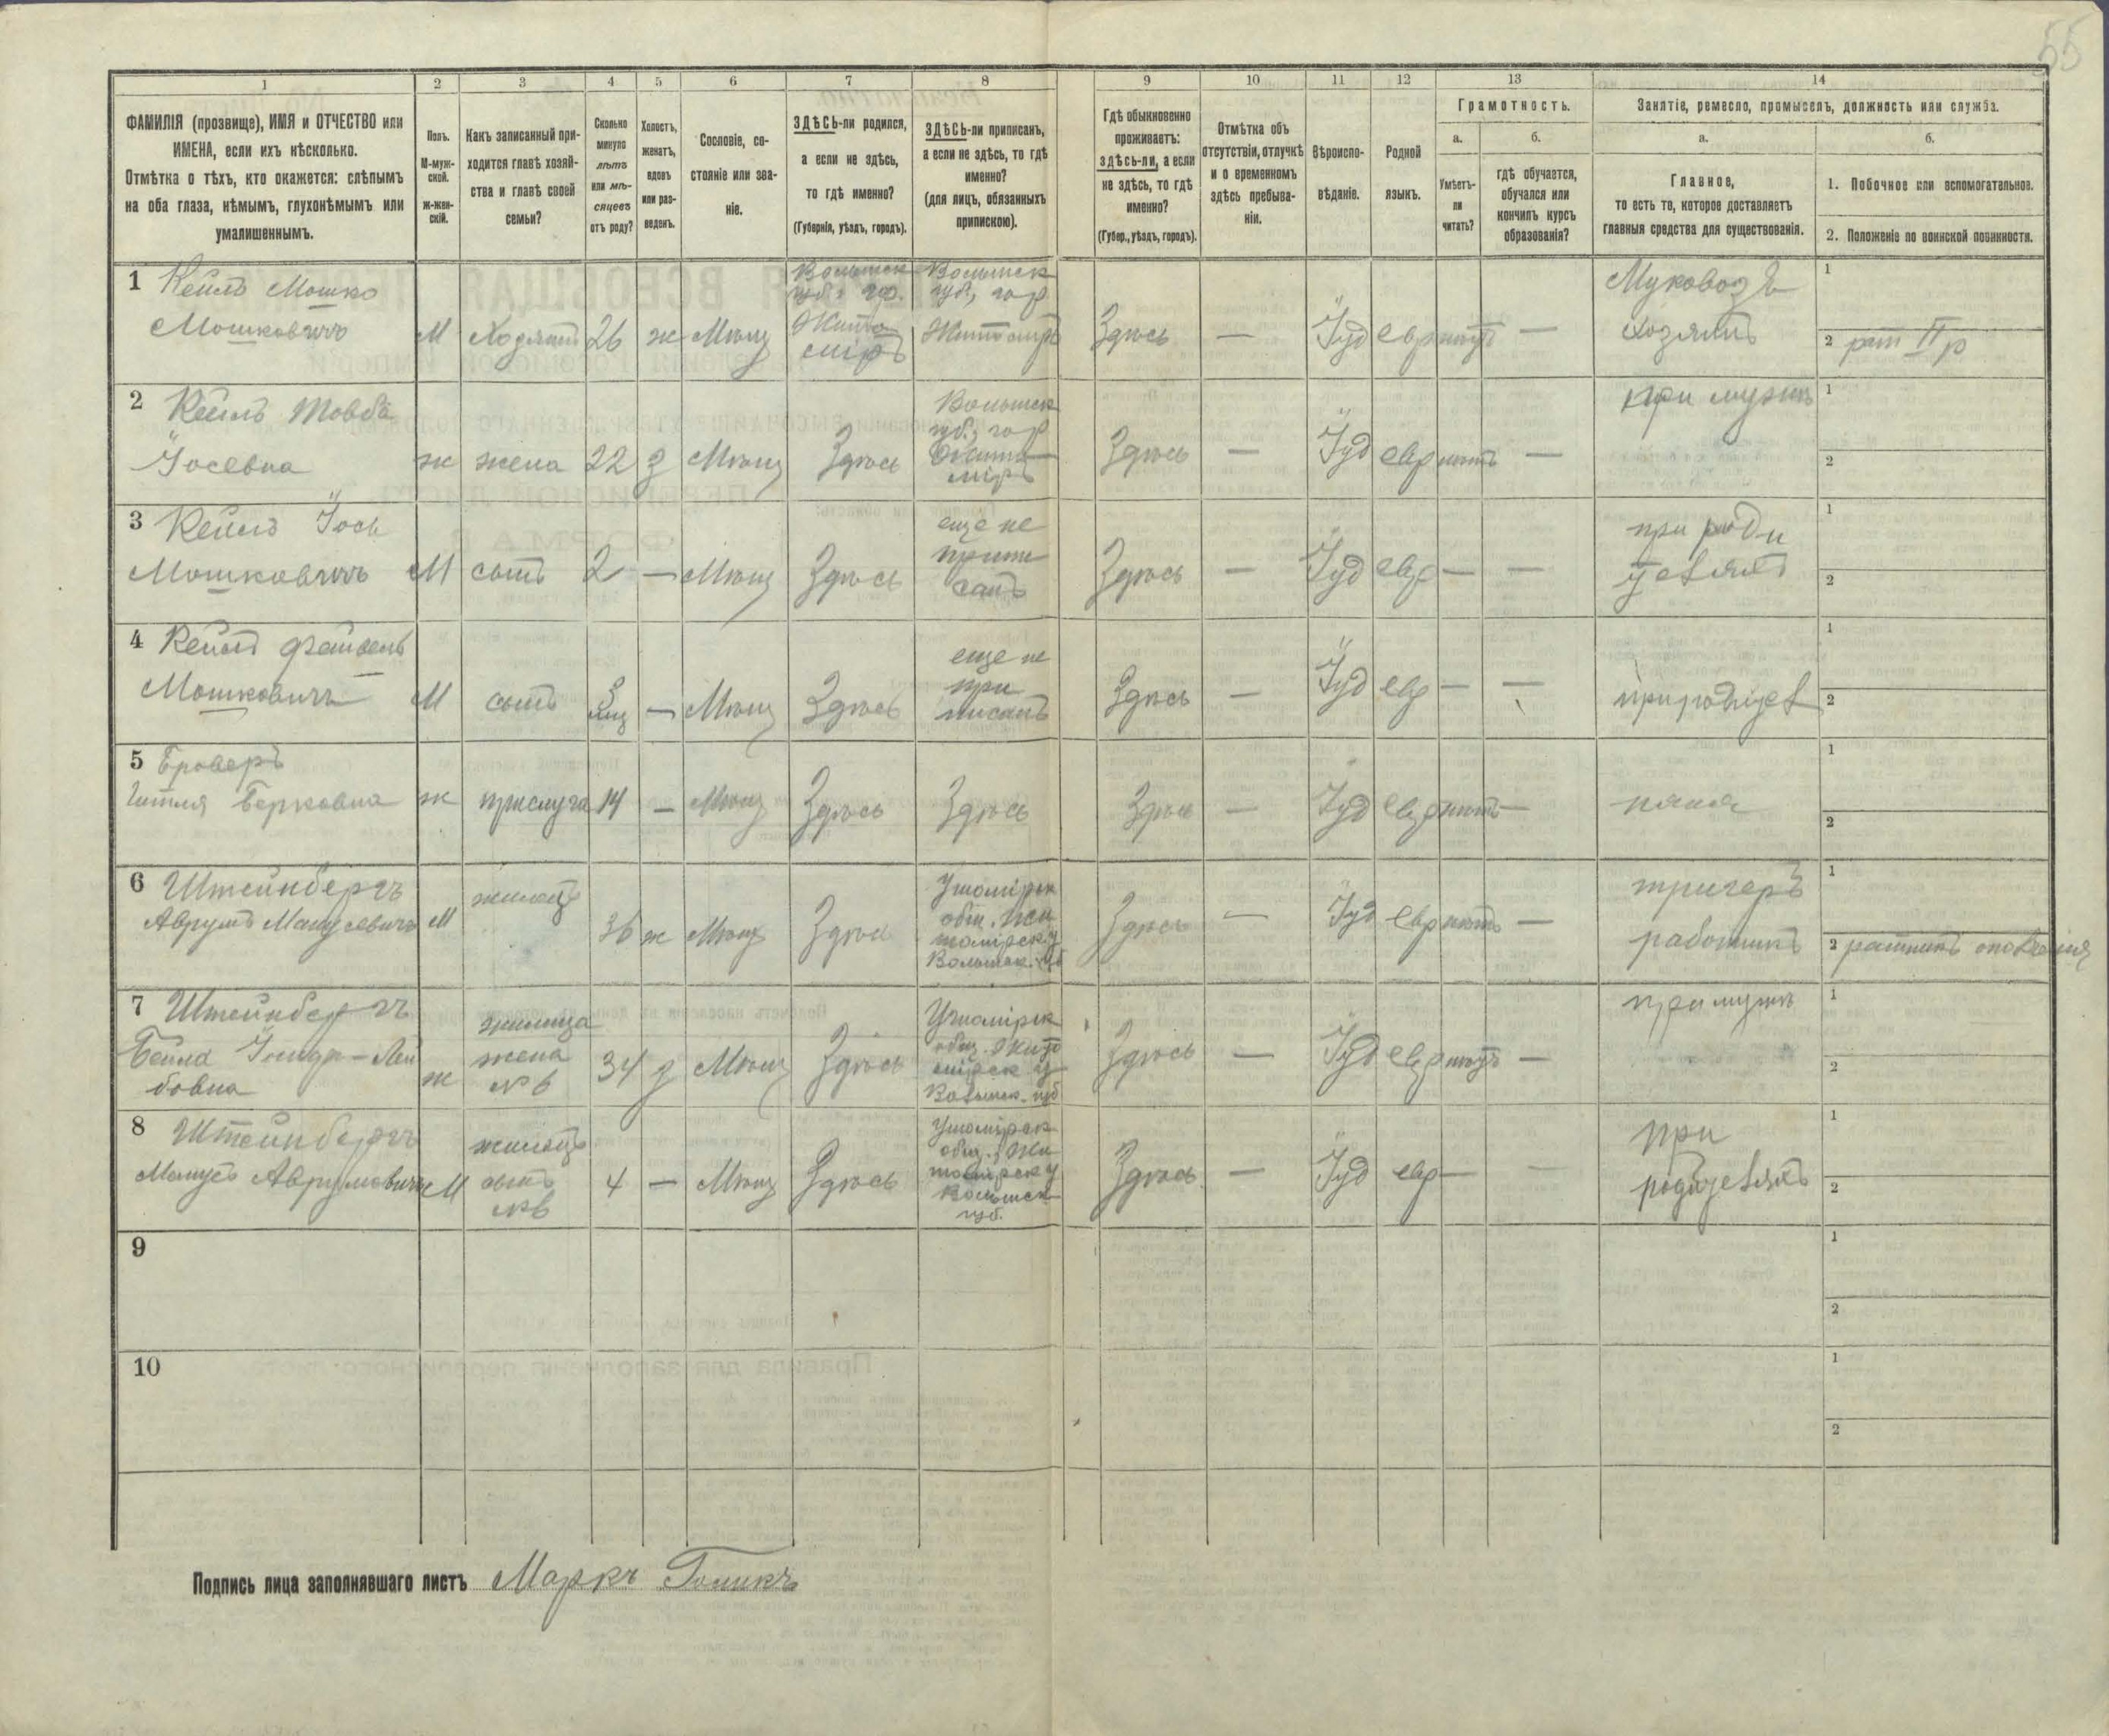 55
1
2
3
4
5
6
7
8
9
10
11
12
13
14
ФАМИЛІЯ (прозвище), ИМЯ и ОТЧЕСТВО или
ИМЕНА, если ихъ нѣсколько.
Отмѣтка о тѣхъ, кто окажется: слѣпымъ
на оба глаза, нѣмымъ, глухонѣмымъ или
умалишеннымъ.
Полъ.
М-муж-
ской.
ж-жен-
скій.
Какъ записанный при-
ходится главѣ хозяй-
ства и главѣ своей
семьи?
Сколько
минуло
лѣтъ
или мѣ-
сяцевъ
отъ роду?
Холостъ,
женатъ,
вдовъ
или раз-
веденъ.
Сословіе, со-
стояніе или зва-
ніе.
ЗДѢСЬ-ли родился,
а если не здѣсь,
то гдѣ именно?
(Губернія, уѣздъ, городъ).
ЗДѢСЬ-ли приписанъ,
а если не здѣсь, то гдѣ
именно?
(для лицъ, обязанныхъ
припискою).
Гдѣ обыкновенно
проживаетъ:
здѣсь-ли, а если
не здѣсь, то гдѣ
именно?
(Губер., уѣздъ, городъ).
Отмѣтка объ
отсутствіи, отлучкѣ
и о временномъ
здѣсь пребыва-
ніи.
Вѣроиспо-
вѣданіе.
Родной
языкъ.
Грамотность.
а.
Умѣетъ-
ли
читать?
б.
гдѣ обучается,
обучался или
кончилъ курсъ
образованія?
Занятіе, ремесло, промыселъ, должность или служба.
а.
Главное,
то есть то, которое доставляетъ
главныя средства для существованія.
б.
1. Побочное или вспомогательное.
2. Положеніе по воинской повинности.
1 Кейлъ Мошко
Мошковичъ
М
26
ж
Мѣщ
Волынск
губ., гор.
Жито
міръ
Волынск
губ., гор
Житоміръ
Здѣсь
—
Іуд
евр
—
хозяинъ
1
2 рат II р
2 Кейлъ Товба
Іосевна
ж
жена
22
з
Мѣщ
Здѣсь
Волынск
губ., гор
Жито
міръ
Здѣсь
—
Іуд
евр
нѣтъ
—
при мужѣ
1
2
3 Кейлъ Іось
Мошковичъ
М
сынъ
2
—
Мѣщ
Здѣсь
еще не
припи
санъ
Здѣсь
—
Іуд
евр
—
—
при роди
1
2
4 Кейлъ Файвель
Мошковичъ
М
сынъ
мц
—
Мѣщ
Здѣсь
еще не
при
писанъ
Здѣсь
—
Іуд
евр
—
—
1
2
5 Броверъ
Гитля Берковна
ж
прислуга
14
—
Мѣщ
Здѣсь
Здѣсь
Здѣсь
—
Іуд
евр
нѣтъ
—
няня
1
2
6 Штейнбергъ
Аврумъ Манусевичъ
М
жилецъ
36
ж
Мѣщ
Здѣсь
Ушомірск
общ. Жи
томірск. у
Волынск. губ
Здѣсь
—
Іуд
евр
нѣтъ
—
работникъ
1
2 ратникъ ополченія
7 Штейнбергъ
Бейла
бовна
ж
жилица
жена
№ 6
34
з
Мѣщ
Здѣсь
Ушомірск
общ. Жито
мірск у
Волынск. губ
Здѣсь
—
Іуд
евр
нѣтъ
—
при мужѣ
1
2
8 Штейнбергъ
Манусъ Аврумовичъ
М
жилецъ
сынъ
№ 6
4
—
Мѣщ
Здѣсь
Ушомірск
общ., Жи
томірск у
Волынск
губ.
Здѣсь
—
Іуд
евр
—
—
при
родителяхъ
1
2
9
1
2
10
1
2
Подпись лица заполнявшаго листъ Маркъ Голикъ